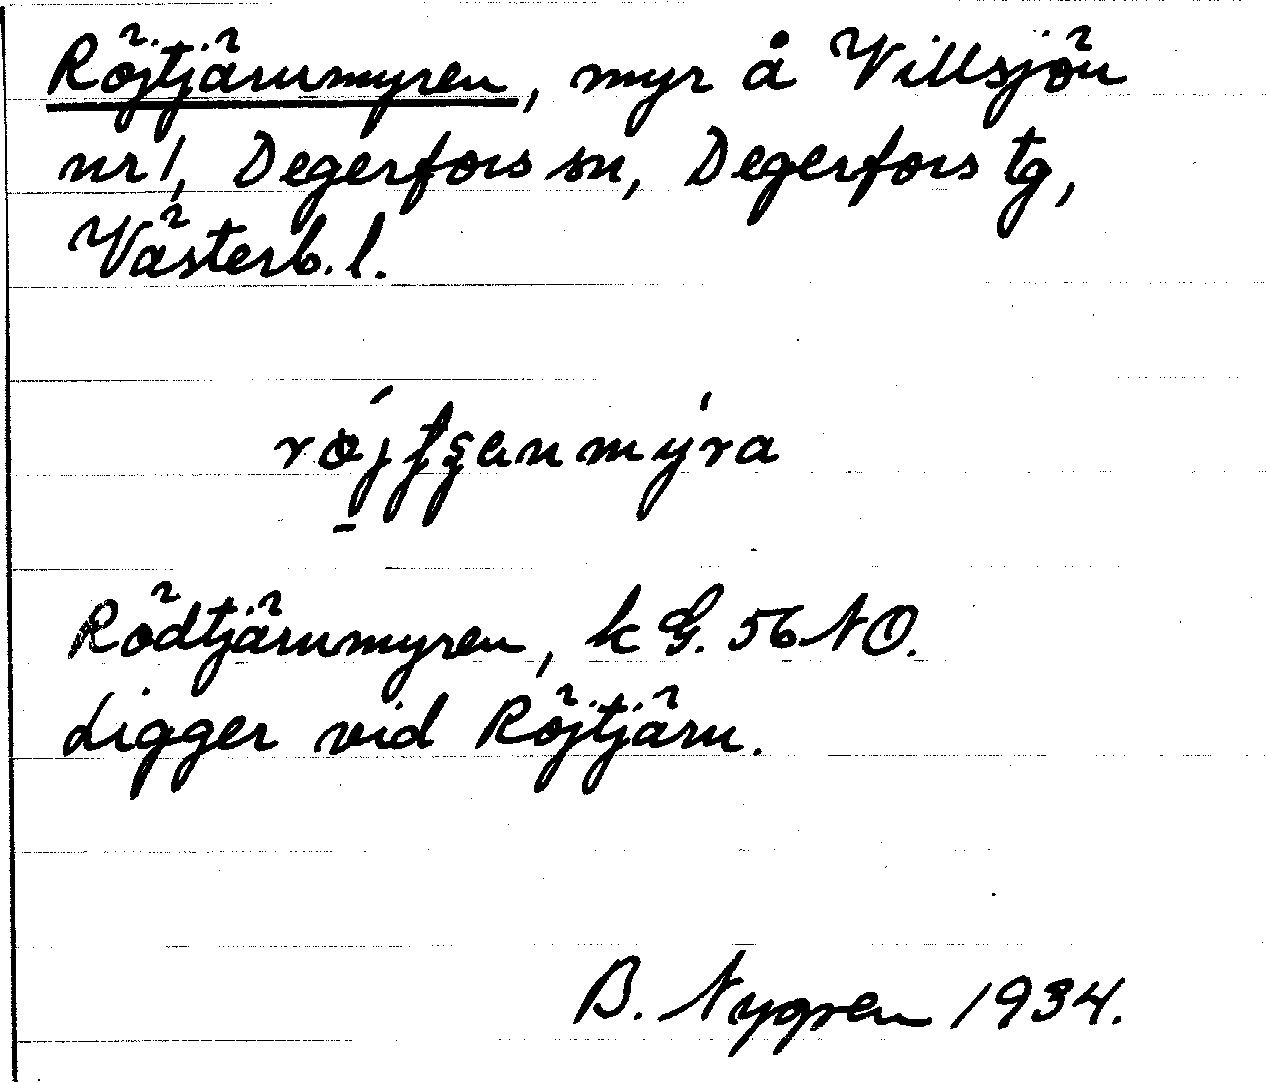 Röjtjärnmyren, myr å Villsjön
nr 1, Degerfors sn, Degerfors tg,
Västerb. l.
Rödtjärnmyren, k G. 56 NO.
Ligger vid Röjtjärn.
B. Nygren 1934.